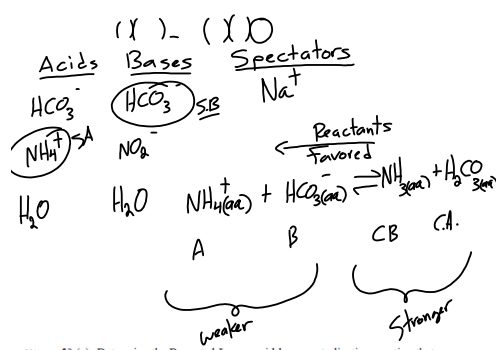 ( )( ) – ( )( )O
Acids Bases Spectators
HCO₃⁻ HCO₃⁻ S.B Na⁺
NH₄⁺ SA NO₂⁻
Reactants
Favored
H₂O H₂O NH₄⁺(aq) + HCO₃⁻(aq) ⇌ NH₃(aq) + H₂CO₃(aq)
A B CB C.A.
weaker Stronger